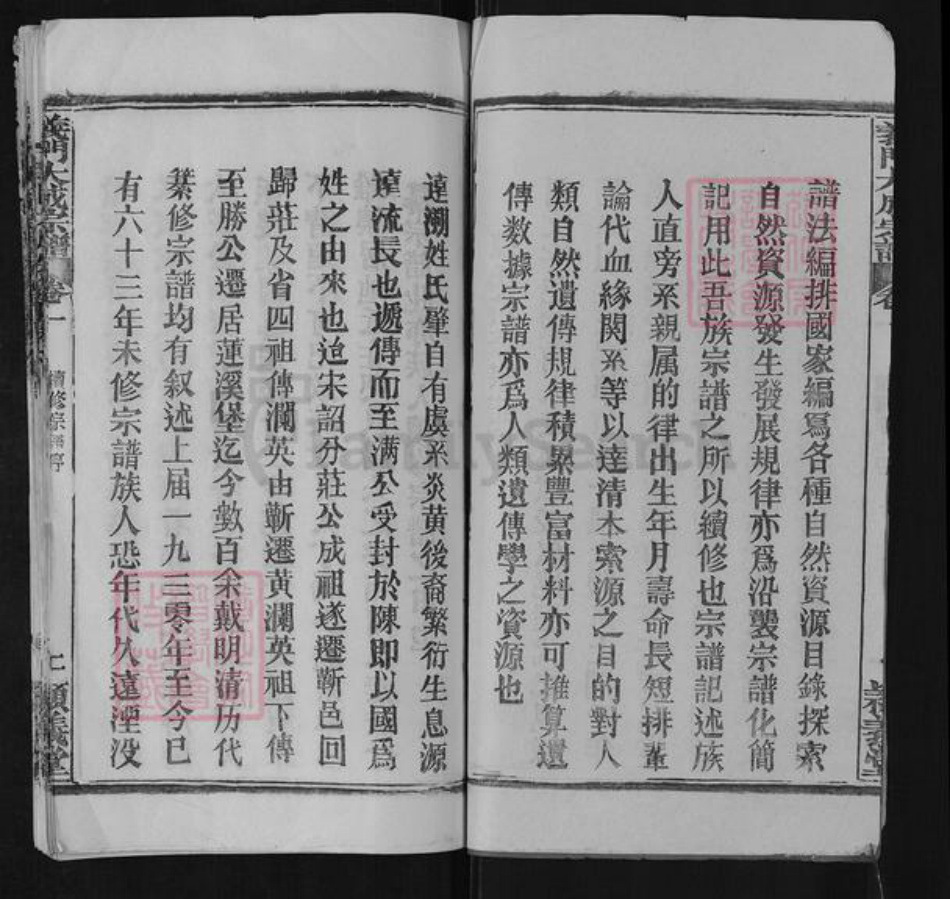 譜法編排國家編寫各種自然資源目錄探索
自然資源發生發展規律亦爲沿襲宗譜化簡
記用此吾族宗譜之所以續修也宗譜記述族
人直旁系親属的律出生年月壽命長短排輩
論代血緣関系等以達清本索源之目的對人
類自然遺傳規律積累豐富材料亦可推算遺
傳数據宗譜亦爲人類遺傳學之資源也
遠溯姓氏肇自有虞系炎黄後裔繁衍生息源
遠流長也遞傳而至满公受封於陳即以國爲
姓之由來也迨宋詔分莊公成祖遂遷蘄邑回
歸莊及省四祖傳瀾英由蘄遷黄瀾英祖下傳
至勝公遷居蓮溪堡迄今數百余載明清历代
纂修宗譜均有叙述上届一九三零年至今已
有六十三年未修宗譜族人恐年代久遠湮没
義門大成宗譜
卷一
續修宗譜序
FamilySearch